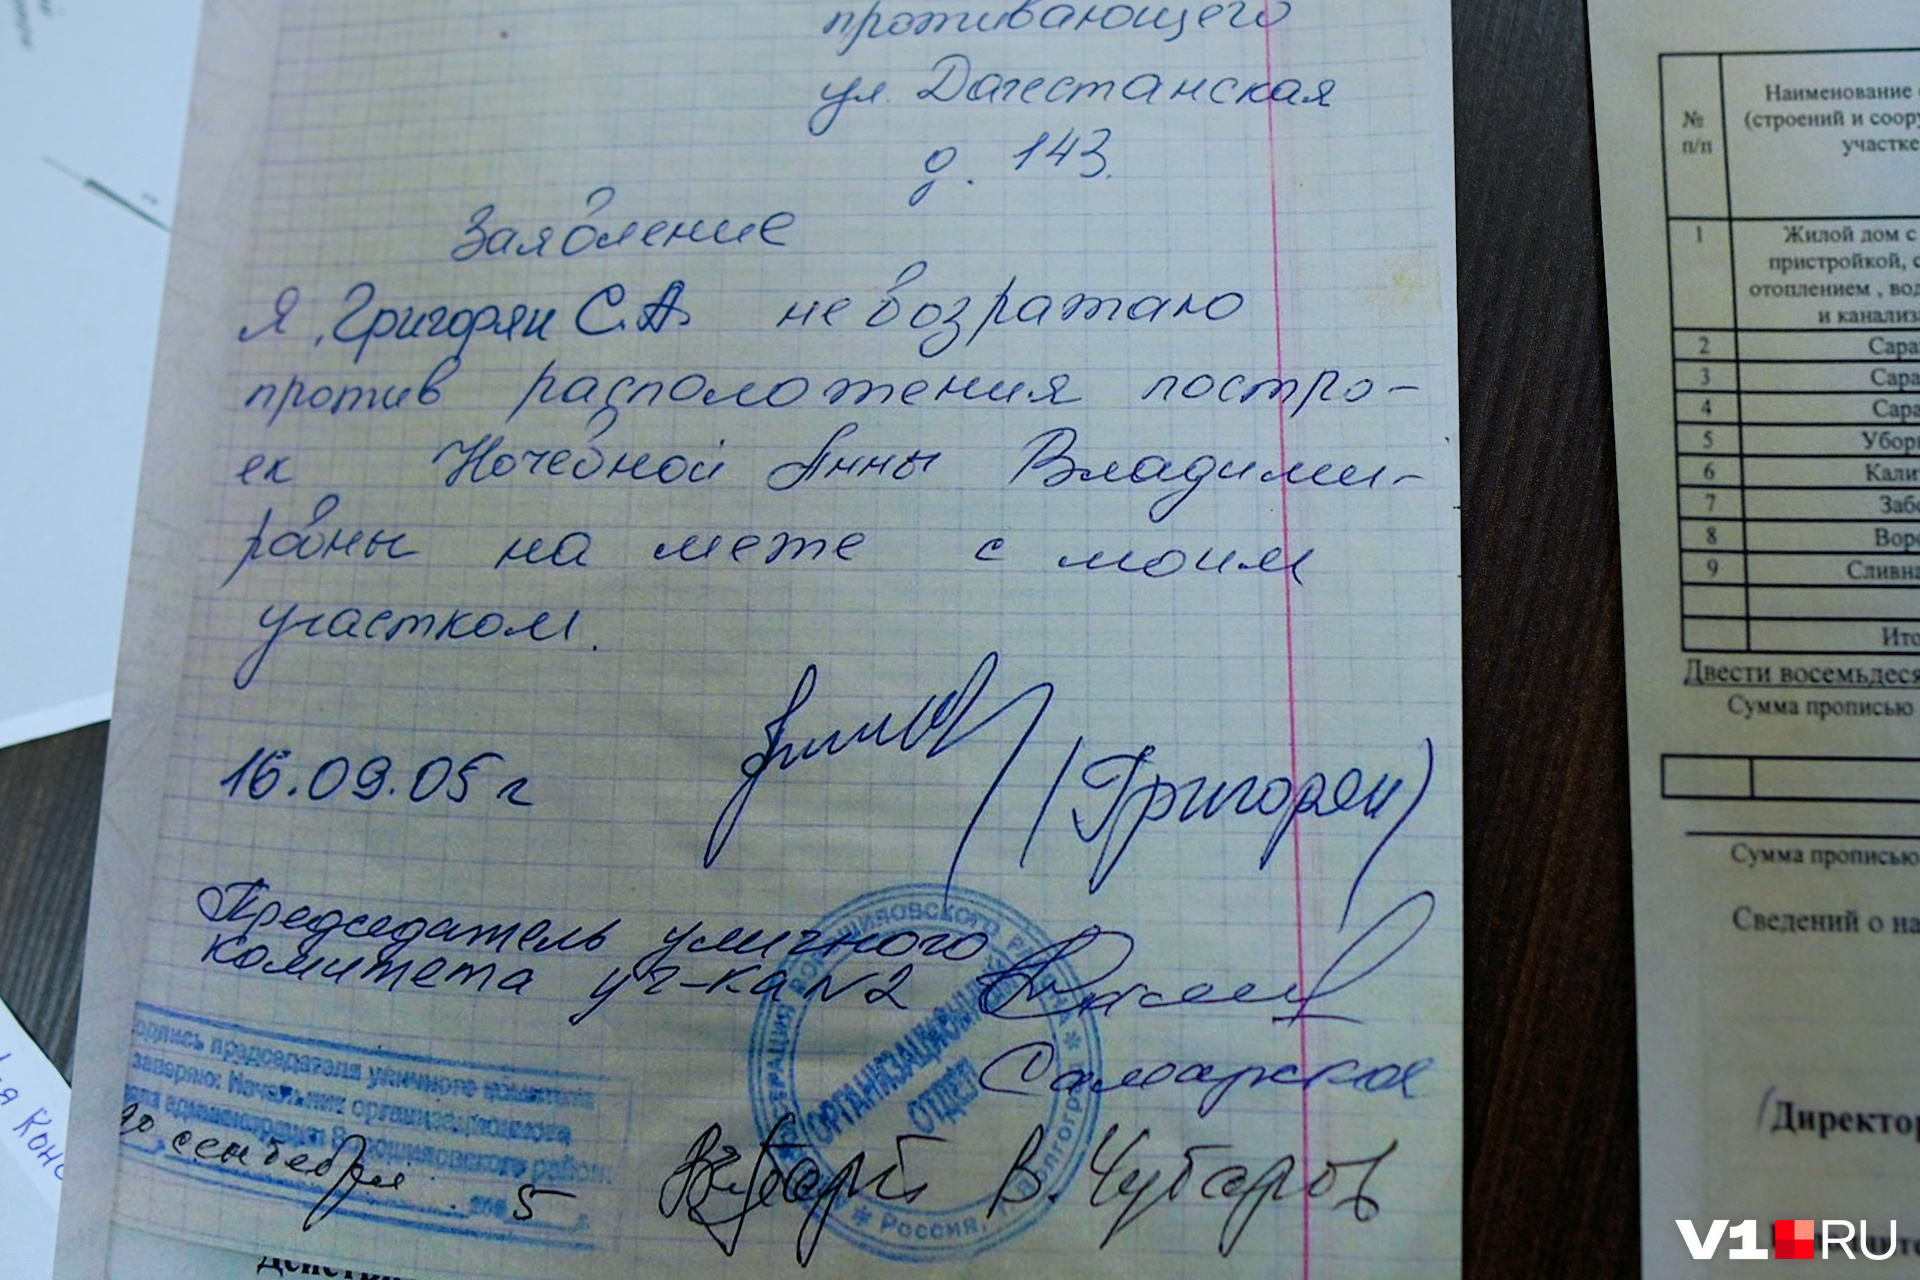 проживающего
ул. Дагестанская
д. 143.
Заявление
Я, Григорян С.А. не возражаю
против расположения постро-
ек Ночевной Анны Владими-
ровны на меже с моим
участком.
16.09.05 г
(Григорян)
Председатель уличного
комитета уч-ка №2
Самарская
подпись председателя уличного комитета
заверяю: Начальник организационного
отдела администрации Ворошиловского района
20 сентября 200 5 г.
В. Чубаров
АДМИНИСТРАЦИЯ ВОРОШИЛОВСКОГО РАЙОНА
ОРГАНИЗАЦИОННЫЙ
ОТДЕЛ
Россия, Волгоград
№
п/п
Наименование
(строений и соору
участке
1
Жилой дом с
пристройкой, с
отоплением , вод
и канализа
2 Сара
3 Сара
4 Сара
5 Уборн
6 Кали
7 Забо
8 Воро
9 Сливна
Ито
Двести восемьдеся
Сумма прописью
Сумма прописью
Сведений о на
Директор
V1.RU